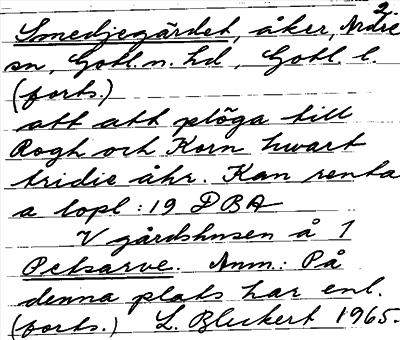 2.
Smedjegärdet, åker, Ardre
sn, Gotl. n. hd, Gotl. l.
(forts.)
att att plöga till
Rogh och Korn hwart
tridie åhr. Kan renta
a lopl : 19 DBA
V gårdshusen å 1
Petsarve. Anm.: På
denna plats har enl.
(forts.) L. Bleckert 1965.